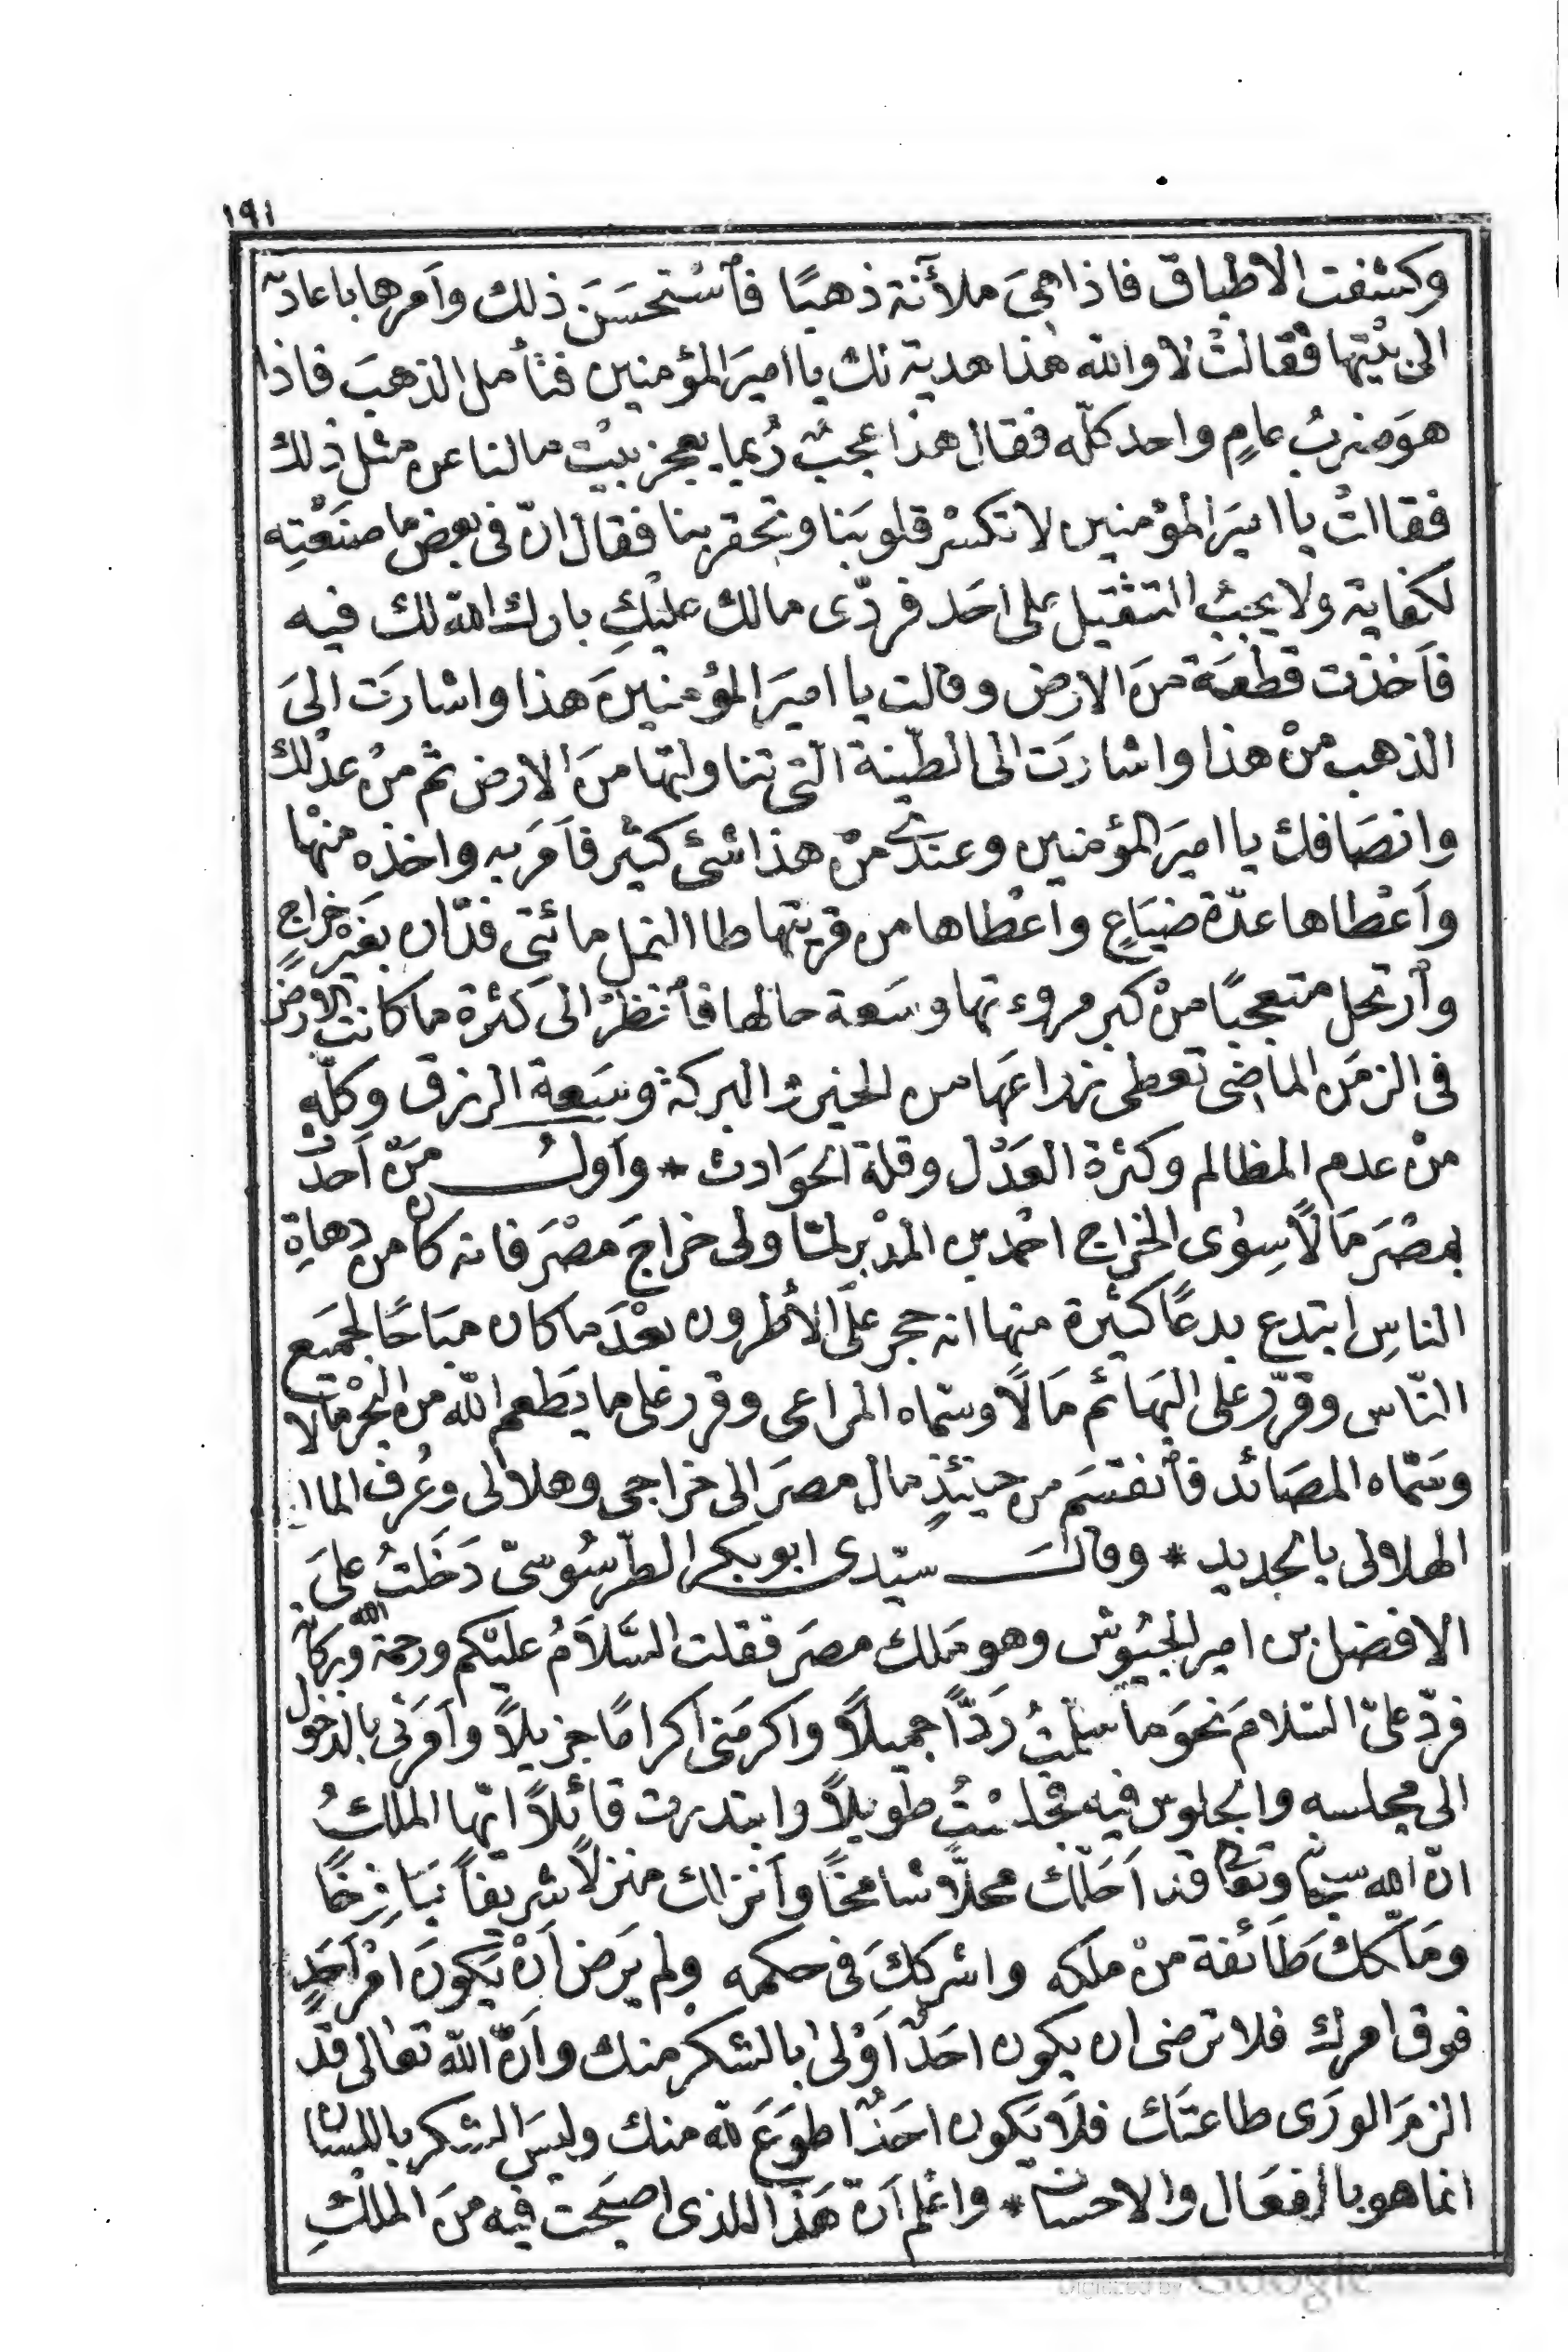 ١٩١
وكشفت الاطباق فاذا هىَ ملأنة ذهبًا فأسْتحسَنَ ذلك وأمرها باعادته
الى بيْتها فقالتْ لا والله هذا هدية لك يا اميرَ المؤمنين فتأمل الذهبَ فاذا
هوَ ضربُ عامٍ واحد كلّه فقال هذا عجبٌ رُبما يعجز بيْت مالنا عن مثل ذلك
فقالت يا اميرَ المؤمنين لا تكسْر قلوبَنا وتحقر بنا فقال انّ فى بعض ما صنَعْتِه
لكفاية ولا يجبُ التثقيل على احَد فردّى مالك عليْكِ بارك الله لك فيه
فأخذت قطْعَة منَ الارض وقالت يا اميرَ المؤمنينَ هذا واشارَت الىَ
الذهب منْ هذا واشارَت الى الطّينة التى تناولتها منَ الارض ثم منْ عدْلك
وانصَافك يا اميرَ المؤمنين وعندى منْ هذا شئ كثير فأمَر به واخذه منْها
وأعْطاها عدّة ضيَاعٍ وأعْطاها من قريتها طا النمل مائتى فدّان بغيْر خراجٍ
وأرتحل متعجبًا منْ كبر مروءتها وسَعة حالها فأنظرْ الى كثرة ما كانت الارض
فى الزمَن الماضى تعطى زراعَها من الخيْر والبركة وسَعة الرزق وكلّه
منْ عدم المظالم وكثرة العَدْل وقلة الحوَادث * وأولُ منّ أحدث
بمصْرَ مَالًا سِوٰى الخراج احْمد بن المدْبر لمّا ولى خراجَ مصْرَ فانه كان من دهاةِ
الناسِ ابتدع بدعًا كثيرة منها انه حجر علَى الأطرون بعْدَ ما كان مبَاحًا لجميع
النّاس وقرّر على البهَائم مَالًا وسمّاه المراعى وقرر على ما يَطعم الله من البحْر مالا
وسَمّاه المصَائد فأنقسَم من حينئذٍ مال مصرَ الى خراجى وهلالى وعُرف المال
الهلالى بالجديد * وقالَ سيّدى ابو بكر الطّرسُوسىّ دَخَلتُ علىَ
الافضل بن امير الجيُوش وهو مَلك مصرَ فقلت السَّلاَمُ عليْكم ورحمة الله وبركاته
فردّ علىّ السّلامَ نحوَ ما سلمْتُ رَدًّا جميلًا واكرمَنى اكرامًا جزيلًا وأمرَنى بالدخول
الى مجلسه والجلوس فيه فجلسْتُ طويلًا وابتدرت قائلًا ايّها الملكُ
انّ الله سبحانه وتعالى قد أحَلّك محلًّا شامخًا وأنزلك منزلًا شريفًا بَازخًا
ومَلّككَ طَائفة منْ ملكه واشركَكَ فى حكمه ولم يَرض أنْ يَكونَ امْر أحَدٍ
فوق امرك فلا ترضى ان يكون احَدٌ أوْلىٰ بالشكر منك وأنّ الله تعالى قدْ
الزمَ الورَى طاعتَك فلَا يَكون احَدٌ اطوَعَ لله منك وليسَ الشكر باللسان
انما هو بالفعَال والاحسان * واعْلم أنّ هَذَا اللذى اصبَحت فيه منَ الملْكِ
Digitized by Google